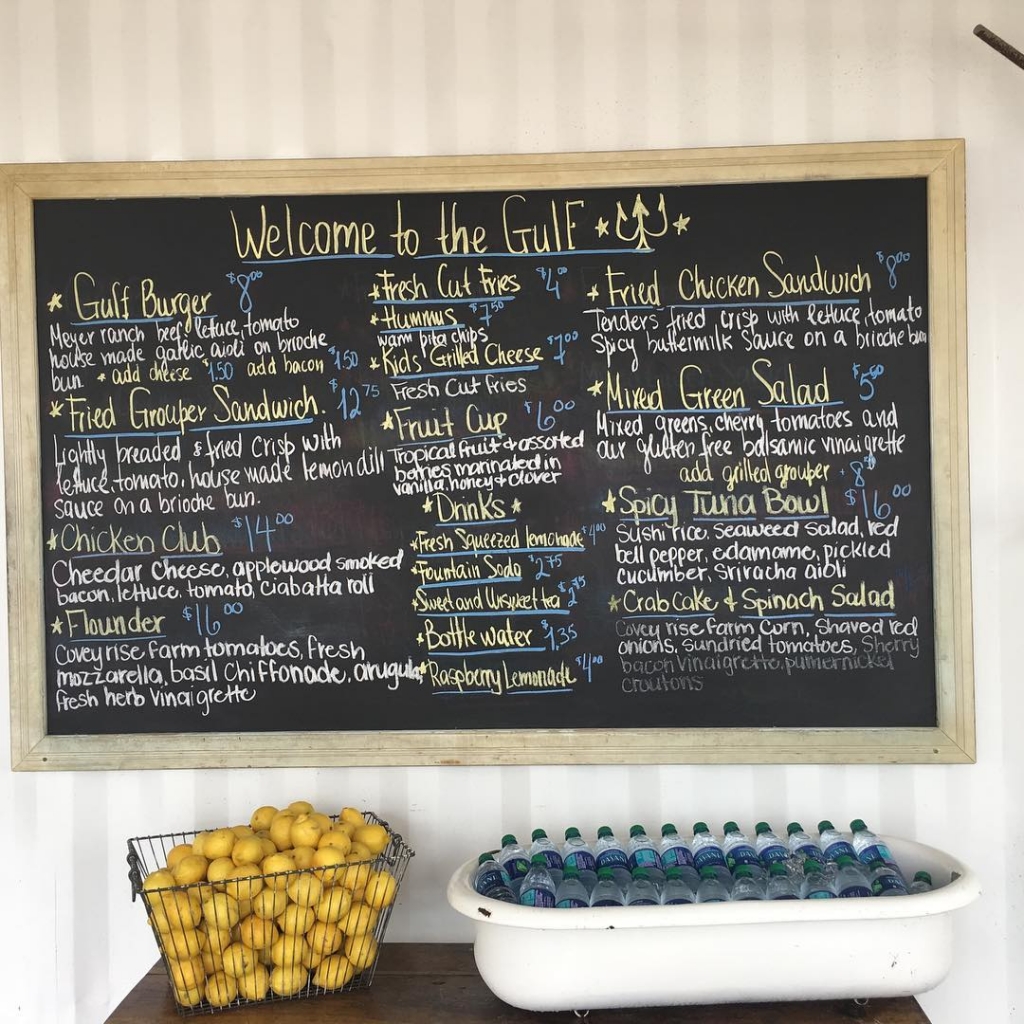 Welcome to the Gulf
Gulf Burger $8.00
Meyer ranch beef, lettuce, tomato
house made garlic aioli on brioche
bun. * add cheese $1.50 add bacon $1.50
Fried Grouper Sandwich. $12.75
Lightly breaded & fried crisp with
lettuce, tomato, house made lemon dill
sauce on a brioche bun.
Chicken Club $14.00
Cheedar cheese, applewood smoked
bacon, lettuce, tomato, ciabatta roll
Flounder $16.00
Covey rise farm tomatoes, fresh
mozzarella, basil chiffonade, arugula
fresh herb vinaigrette
Fresh Cut Fries $4.00
Hummus $7.50
warm pita chips
Kids Grilled Cheese $7.00
Fresh Cut Fries
Fruit Cup $6.00
Tropical fruit + assorted
berries marinated in
vanilla, honey + clover
Drinks
Fresh Squeezed lemonade $4.00
Fountain Soda $2.75
Sweet and Unsweet tea $2.75
Bottle water $1.35
Raspberry Lemonade $4.00
Fried Chicken Sandwich $8.00
Tenders fried crisp with lettuce, tomato
Spicy buttermilk sauce on a brioche bun
Mixed Green Salad $5.50
Mixed greens, cherry tomatoes and
our gluten free balsamic vinaigrette
add grilled grouper
Spicy Tuna Bowl $16.00
Sushi rice, seaweed salad, red
bell pepper, edamame, pickled
cucumber, Sriracha aioli
Crab Cake & Spinach Salad
Covey rise farm corn, shaved red
onions, sundried tomatoes, Sherry
bacon vinaigrette, pumernickel
croutons
DASANI